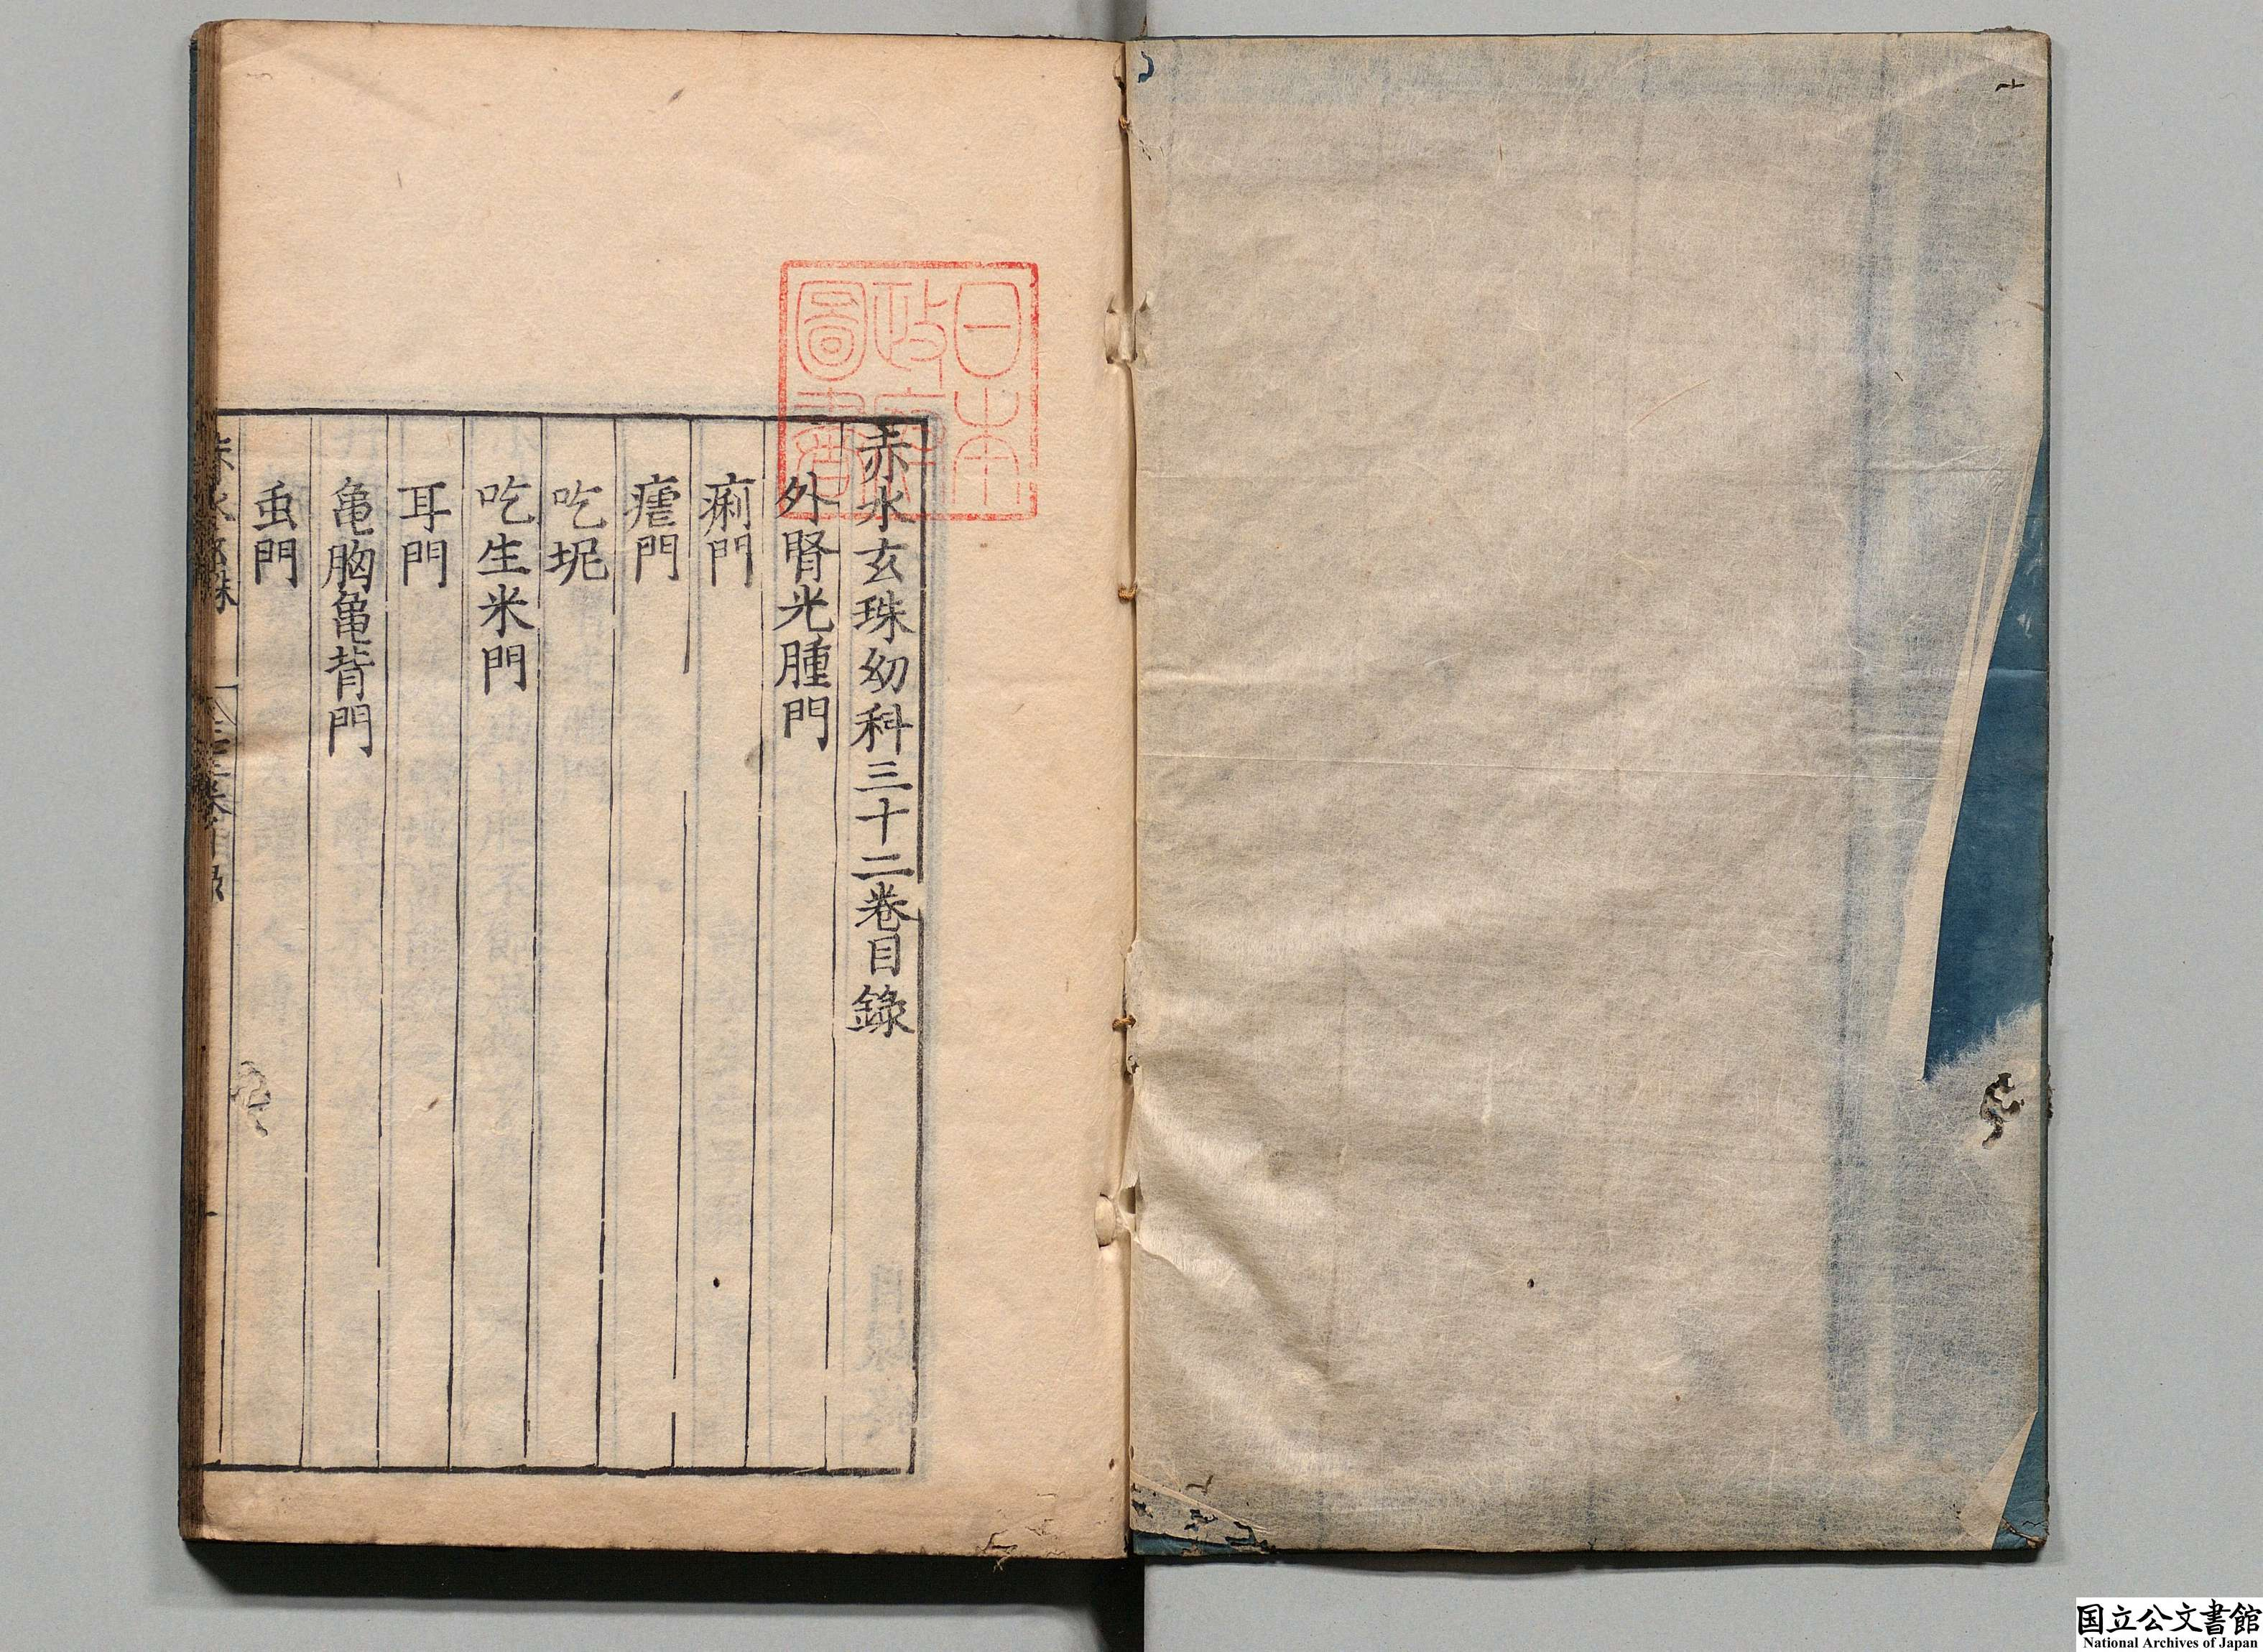 日本
政府
圖書
赤水玄珠幼科三十二卷目錄
外腎光腫門
痢門
瘧門
吃坭
吃生米門
耳門
亀胸亀背門
虫門
国立公文書館
National Archives of Japan